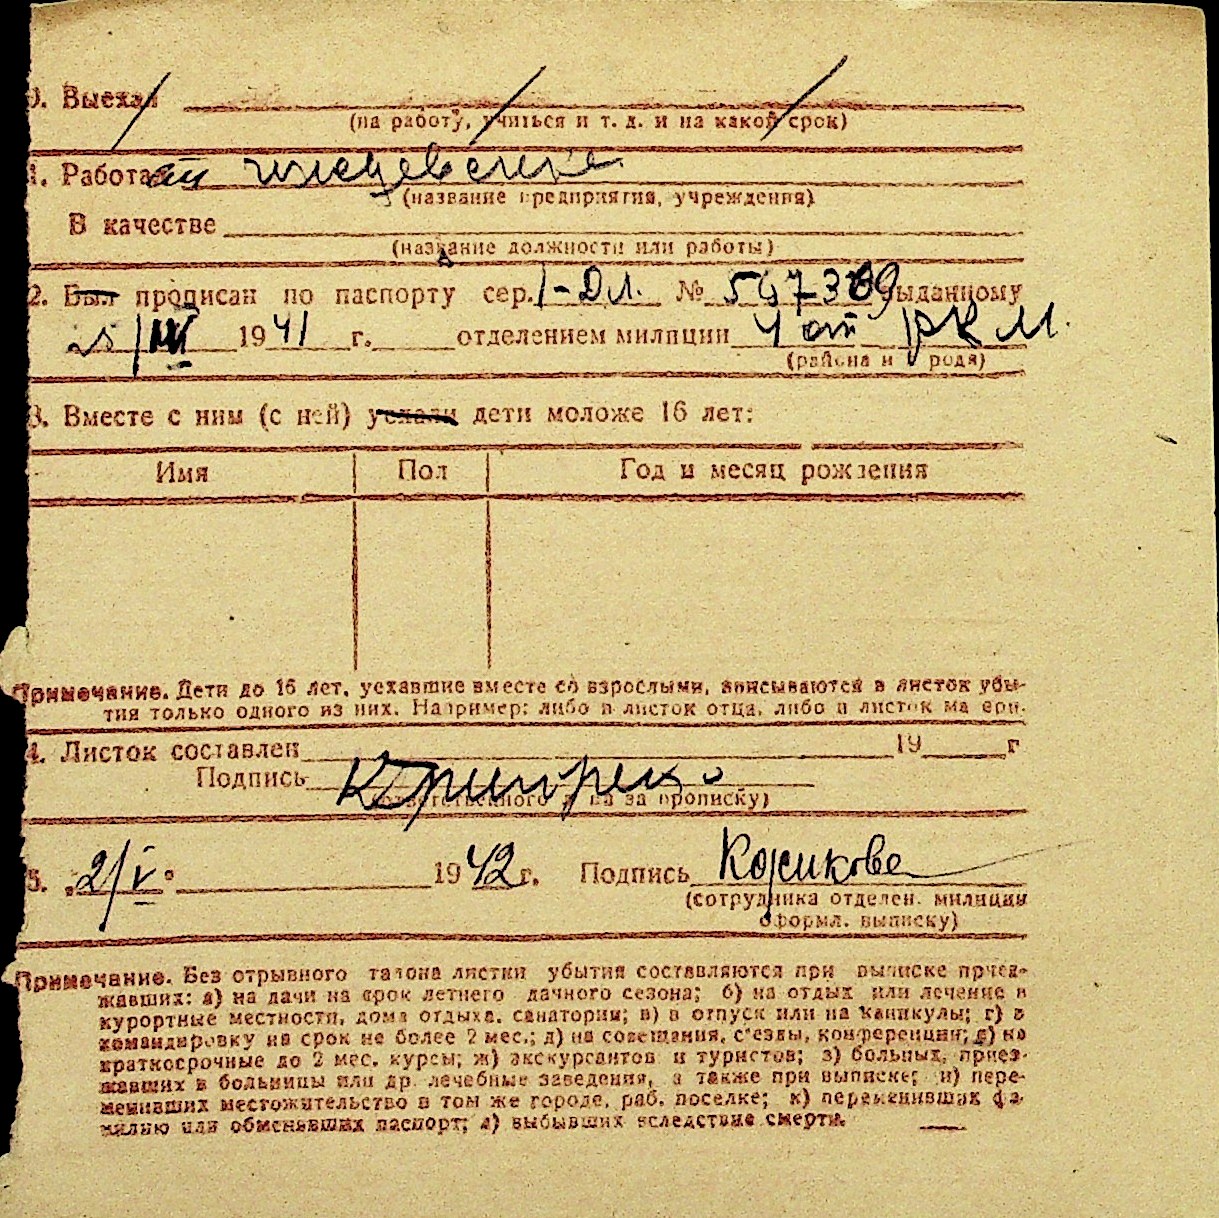 0. Выехал
(на работу, учиться и т. д. и на какой срок)
1. Работа
(название предприятия, учреждения)
В качестве
(название должности или работы)
2. Был прописан по паспорту сер. I-ДЛ. № 597389 выданному
25/III 1941 г. отделением милиции 4 от РКМ.
(района и города)
3. Вместе с ним (с ней) уехали дети моложе 16 лет:
Имя Пол Год и месяц рождения
Примечание. Дети до 16 лет, уехавшие вместе со взрослыми, вписываются в листок убы-
тия только одного из них. Например: либо в листок отца, либо в листок матери.
4. Листок составлен 19 г
Подпись
(ответственного лица за прописку)
5. „2/V" 1942 г. Подпись Кожикова
(сотрудника отделен. милиции
оформл. выписку)
Примечание. Без отрывного талона листки убытия составляются при выписке приез-
жавших: а) на дачи на срок летнего дачного сезона; б) на отдых или лечение в
курортные местности, дома отдыха, санатории; в) в отпуск или на каникулы; г) в
командировку на срок не более 2 мес.; д) на совещания, с'езды, конференции; е) на
краткосрочные до 2 мес. курсы; ж) экскурсантов и туристов; з) больных, приез-
жавших в больницы или др. лечебные заведения, а также при выписке; и) пере-
менивших местожительство в том же городе, раб. поселке; к) переменивших фа-
милию или обменявших паспорт; л) выбывших вследствие смерти.